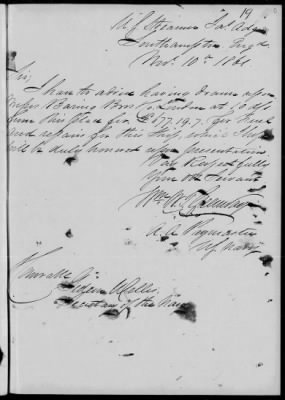 19
U. S. Steamer
Southampton Engd
Nov. 10th 1861
Sir;
I have to advise having drawn upon
Messrs Baring Bros & Co London at
from this place for £ 177.19.7. for Fuel
and repairs for this Ship, which I
will be duly honored upon presentation
Very Respectfully
Your Obt Servant
Wm. W. J.
A. A. Paymaster
US Navy
Honorable
Gideon Welles,
Secretary of the Navy